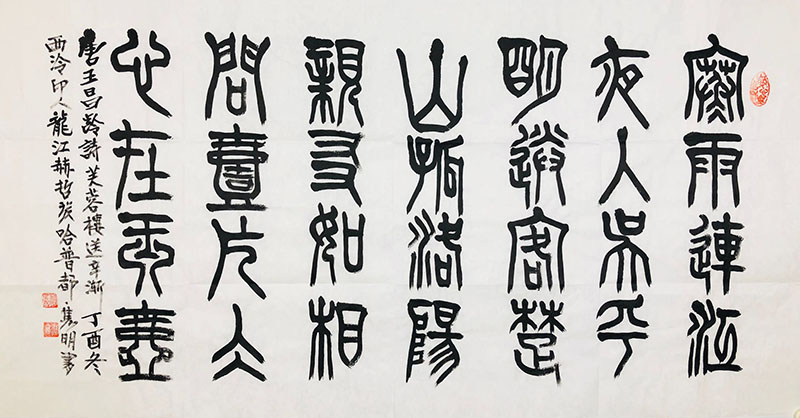 寒雨連江
夜入吳平
明送客楚
山孤洛陽
親友如相
問壹片冰
心在玉壺
唐王昌齡詩芙蓉樓送辛漸 丁酉冬
西泠印人龍江赫哲族哈普都·雋明書